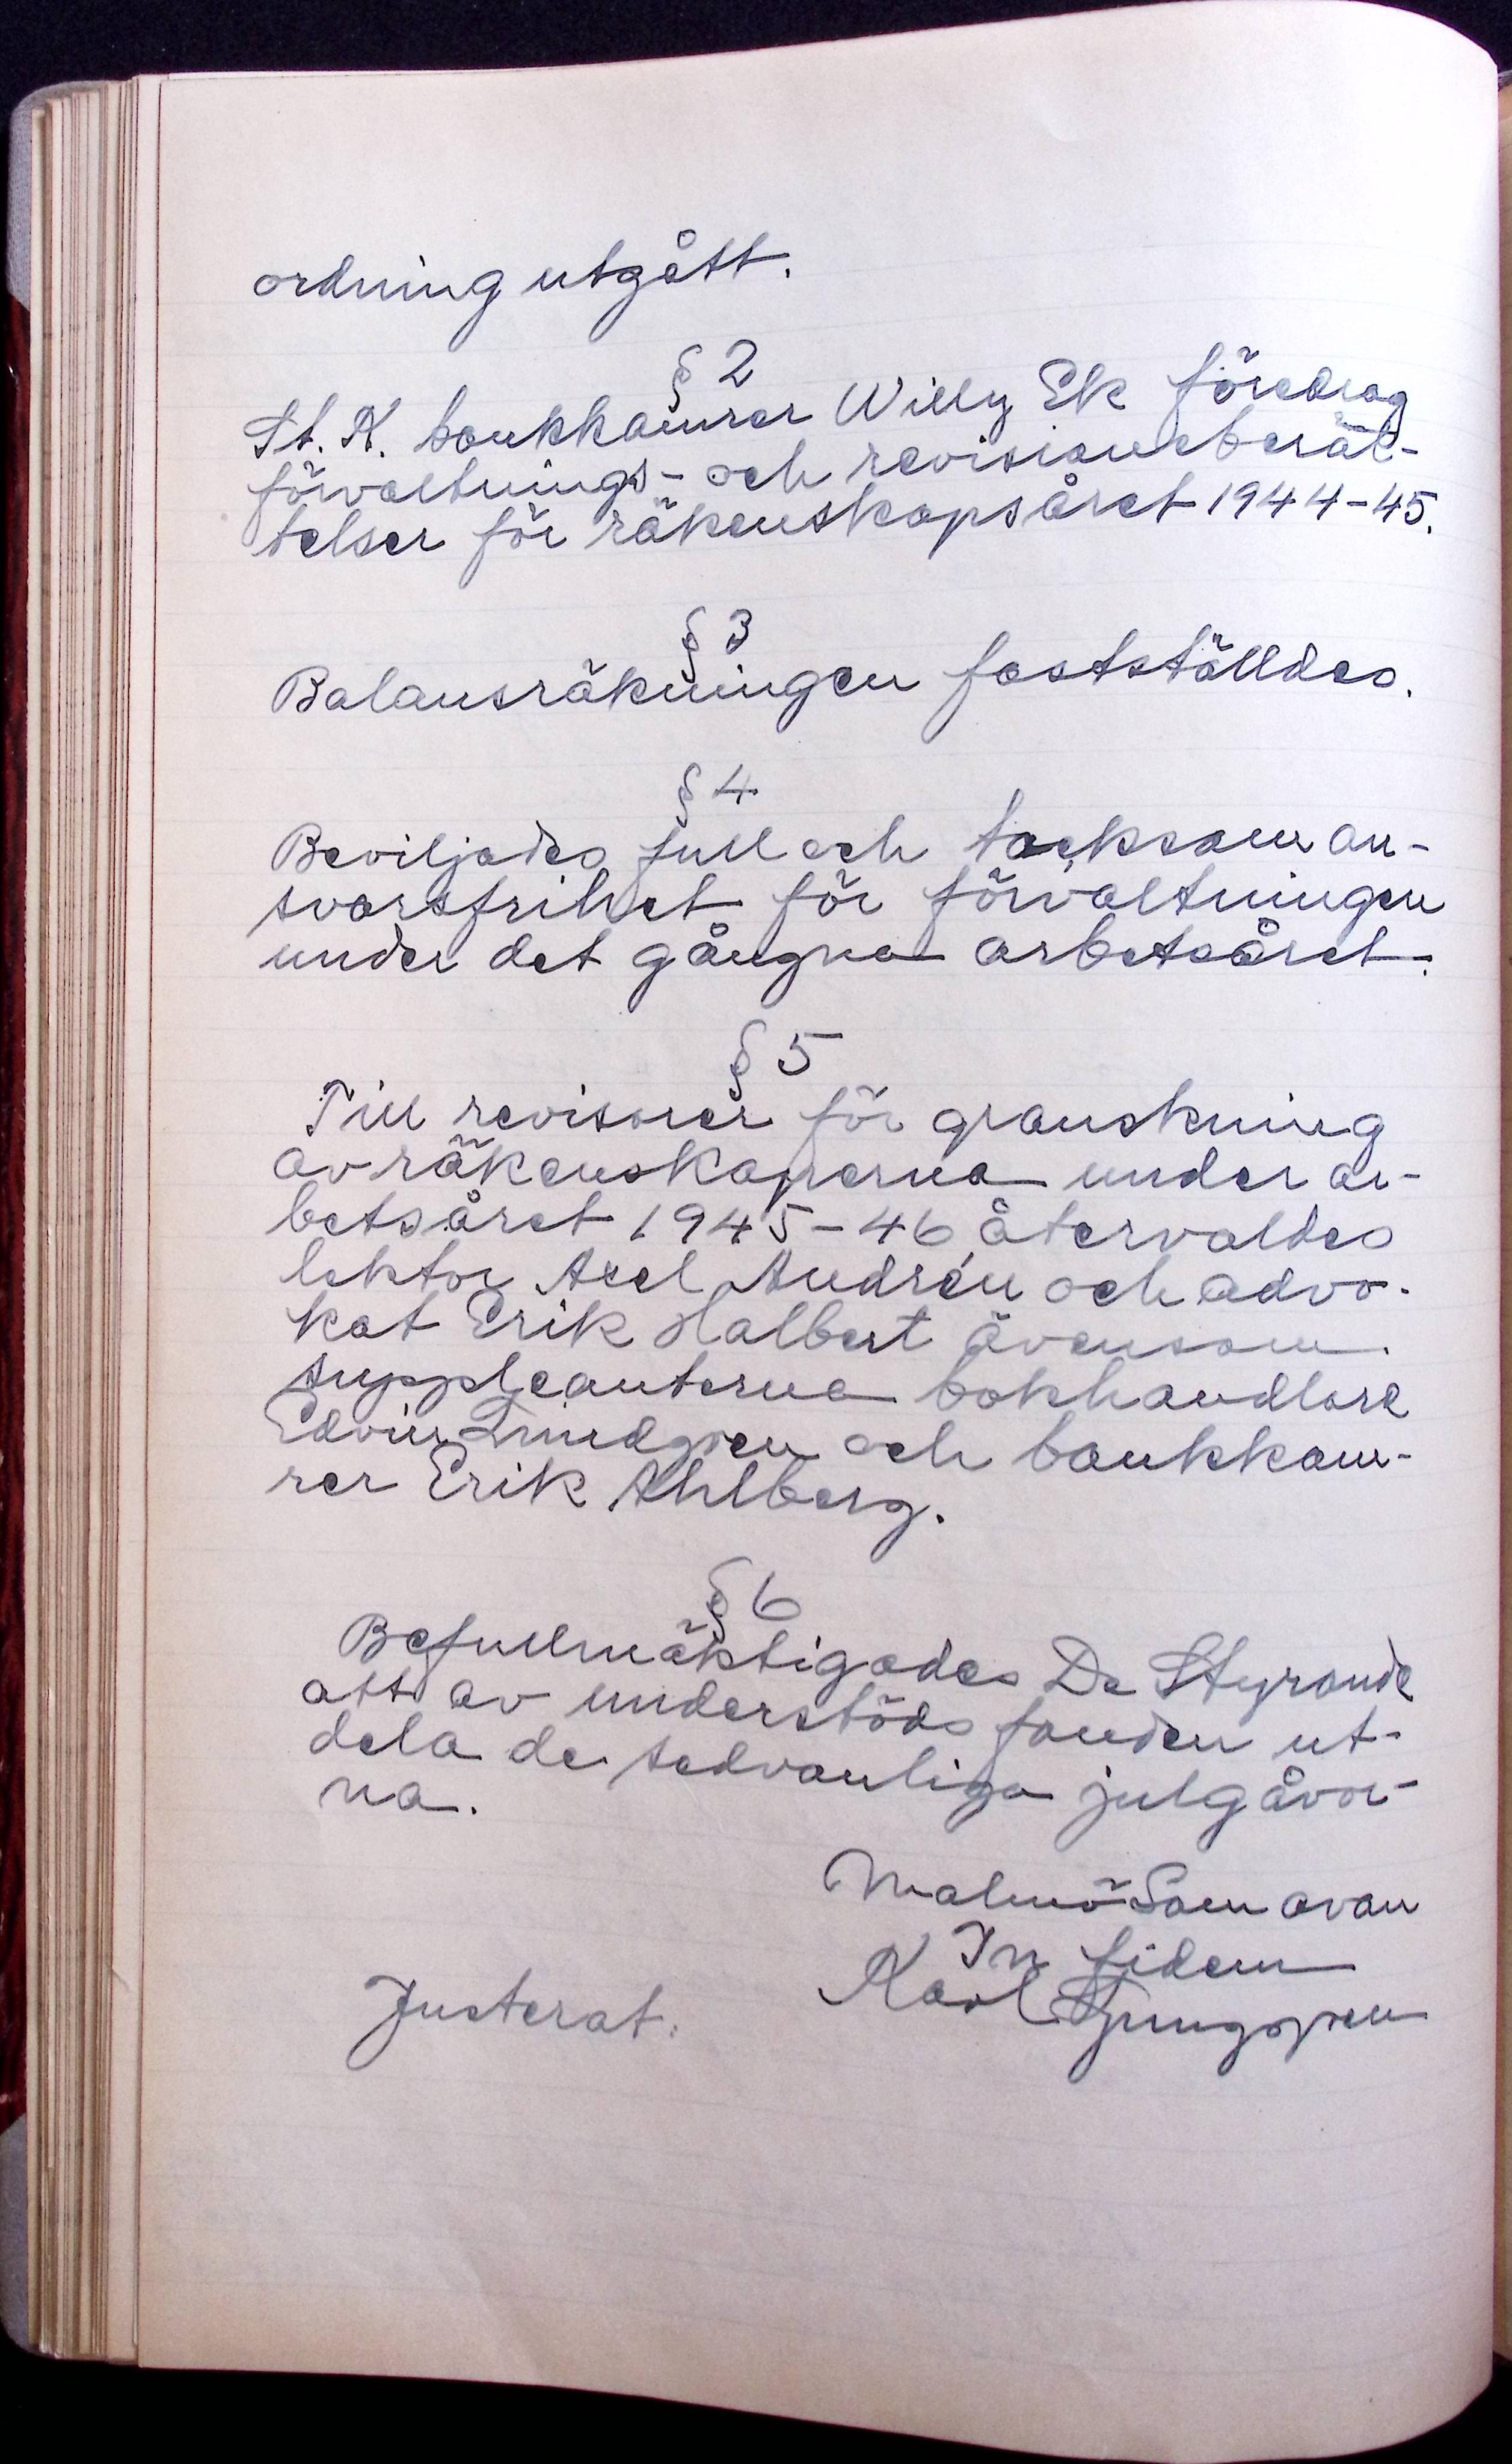 ordning utgått.
§ 2
St. K. bankkamrer Willy Ek föredrog
förvaltnings- och revisionsberät-
telser för räkenskapsåret 1944-45.
§ 3
Balansräkningen fastställdes.
§ 4
Beviljades full och tacksam an-
svarsfrihet för förvaltningen
under det gångna arbetsåret.
§ 5
Till revisorer för granskning
av räkenskaperna under ar-
betsåret 1945-46 återvaldes
lektor Axel Andrén och advo-
kat Erik Halbert ävensom
suppleanterna bokhandlare
Edvin Lindgren och bankkam-
rer Erik Ahlberg.
§ 6
Befullmäktigades De Styrande
att av understödsfonden ut-
dela de sedvanliga julgåvor-
na.
Malmö Som ovan
In fidem
Karl Ljunggren
Justerat.